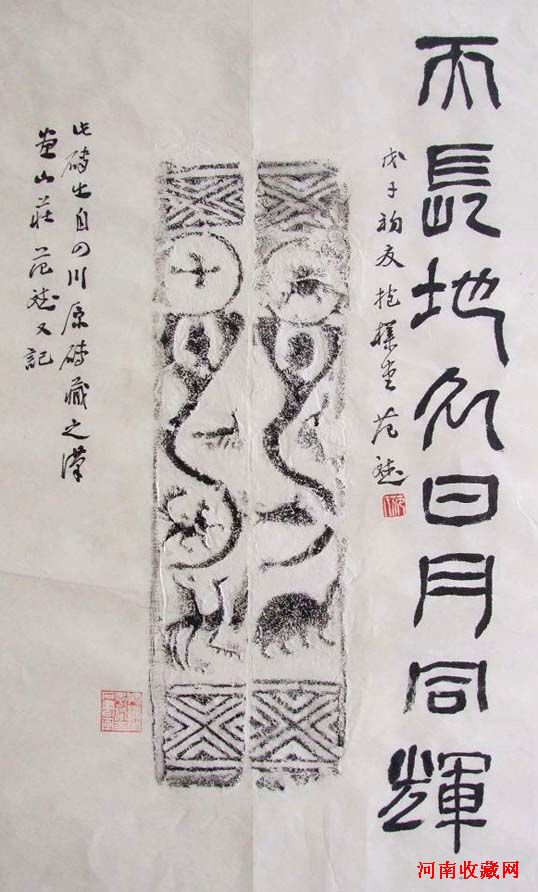 天長地久日月同輝
戊子初夏抱樸堂范斌
此磚出自四川原磚藏之漢
畫山莊范斌又記
河南收藏网